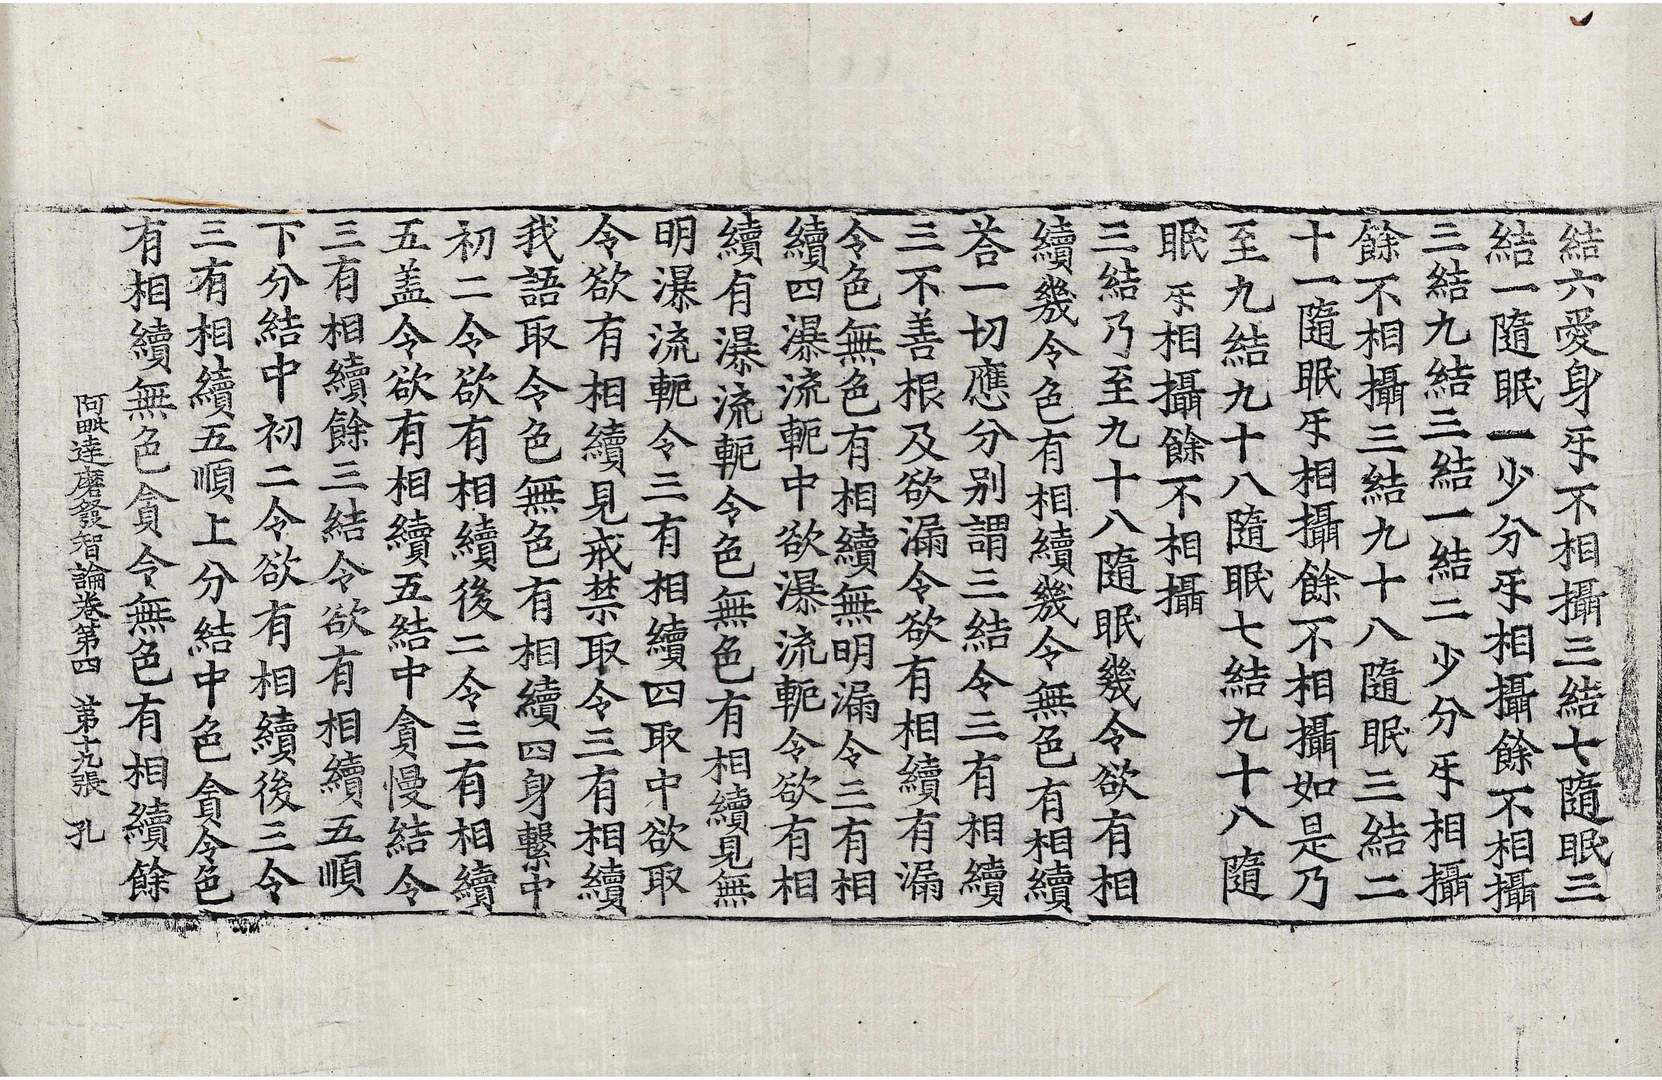 結六愛身㸦不相攝三結七隨眠三
結一隨眠一少分㸦相攝餘不相攝
三結九結三結一結二少分㸦相攝
餘不相攝三結九十八隨眠三結二
十一隨眠㸦相攝餘不相攝如是乃
至九結九十八隨眠七結九十八隨
眠㸦相攝餘不相攝
三結乃至九十八隨眠幾令欲有相
續幾令色有相續幾令無色有相續
荅一切應分別謂三結令三有相續
三不善根及欲漏令欲有相續有漏
令色無色有相續無明漏令三有相
續四瀑流軛中欲瀑流軛令欲有相
續有瀑流軛令色無色有相續見無
明瀑流軛令三有相續四取中欲取
令欲有相續見戒禁取令三有相續
我語取令色無色有相續四身繫中
初二令欲有相續後二令三有相續
五盖令欲有相續五結中貪慢結令
三有相續餘三結令欲有相續五順
下分結中初二令欲有相續後三令
三有相續五順上分結中色貪令色
有相續無色貪令無色有相續餘
阿毗達磨發智論卷第四 第十九張 孔